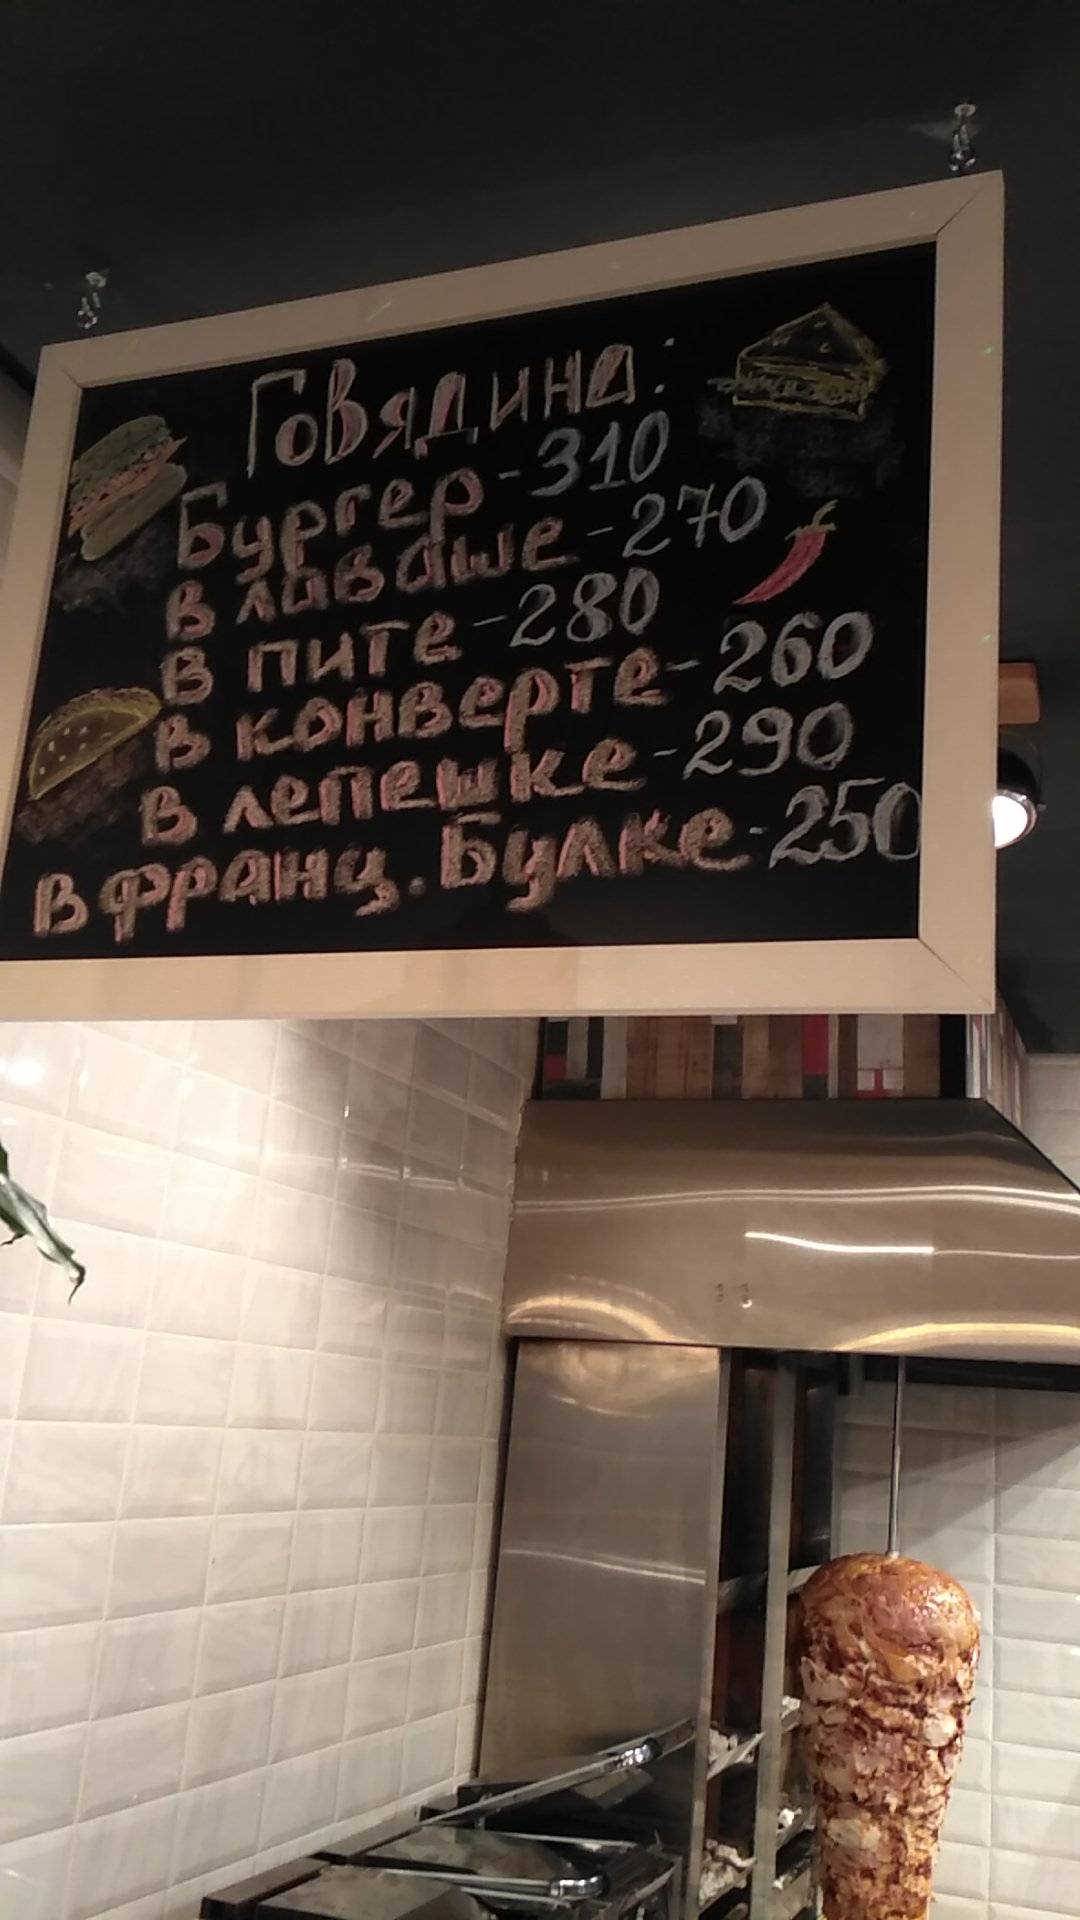 Говядина:
Бургер-310
в лаваше-270
в пите-280
в конверте-260
в лепешке-290
в франц. Булке-250